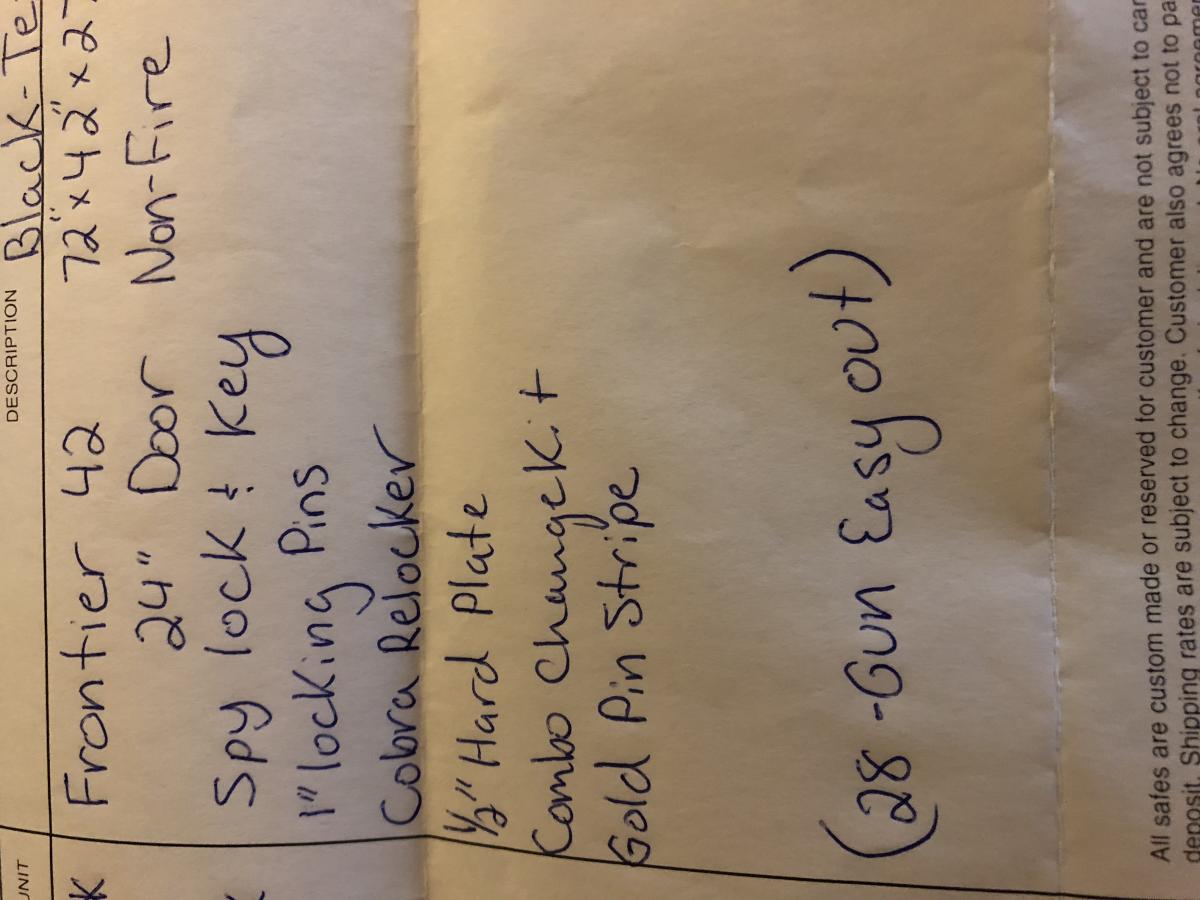 UNIT DESCRIPTION Black-Te
Frontier 42 72"x42"x2
24" Door Non-Fire
Spy lock & Key
1" locking Pins
Cobra Relocker
1/2" Hard Plate
Combo Change Kit
Gold Pin Stripe
(28-Gun Easy out)
All safes are custom made or reserved for customer and are not subject to can
deposit. Shipping rates are subject to change. Customer also agrees not to pa